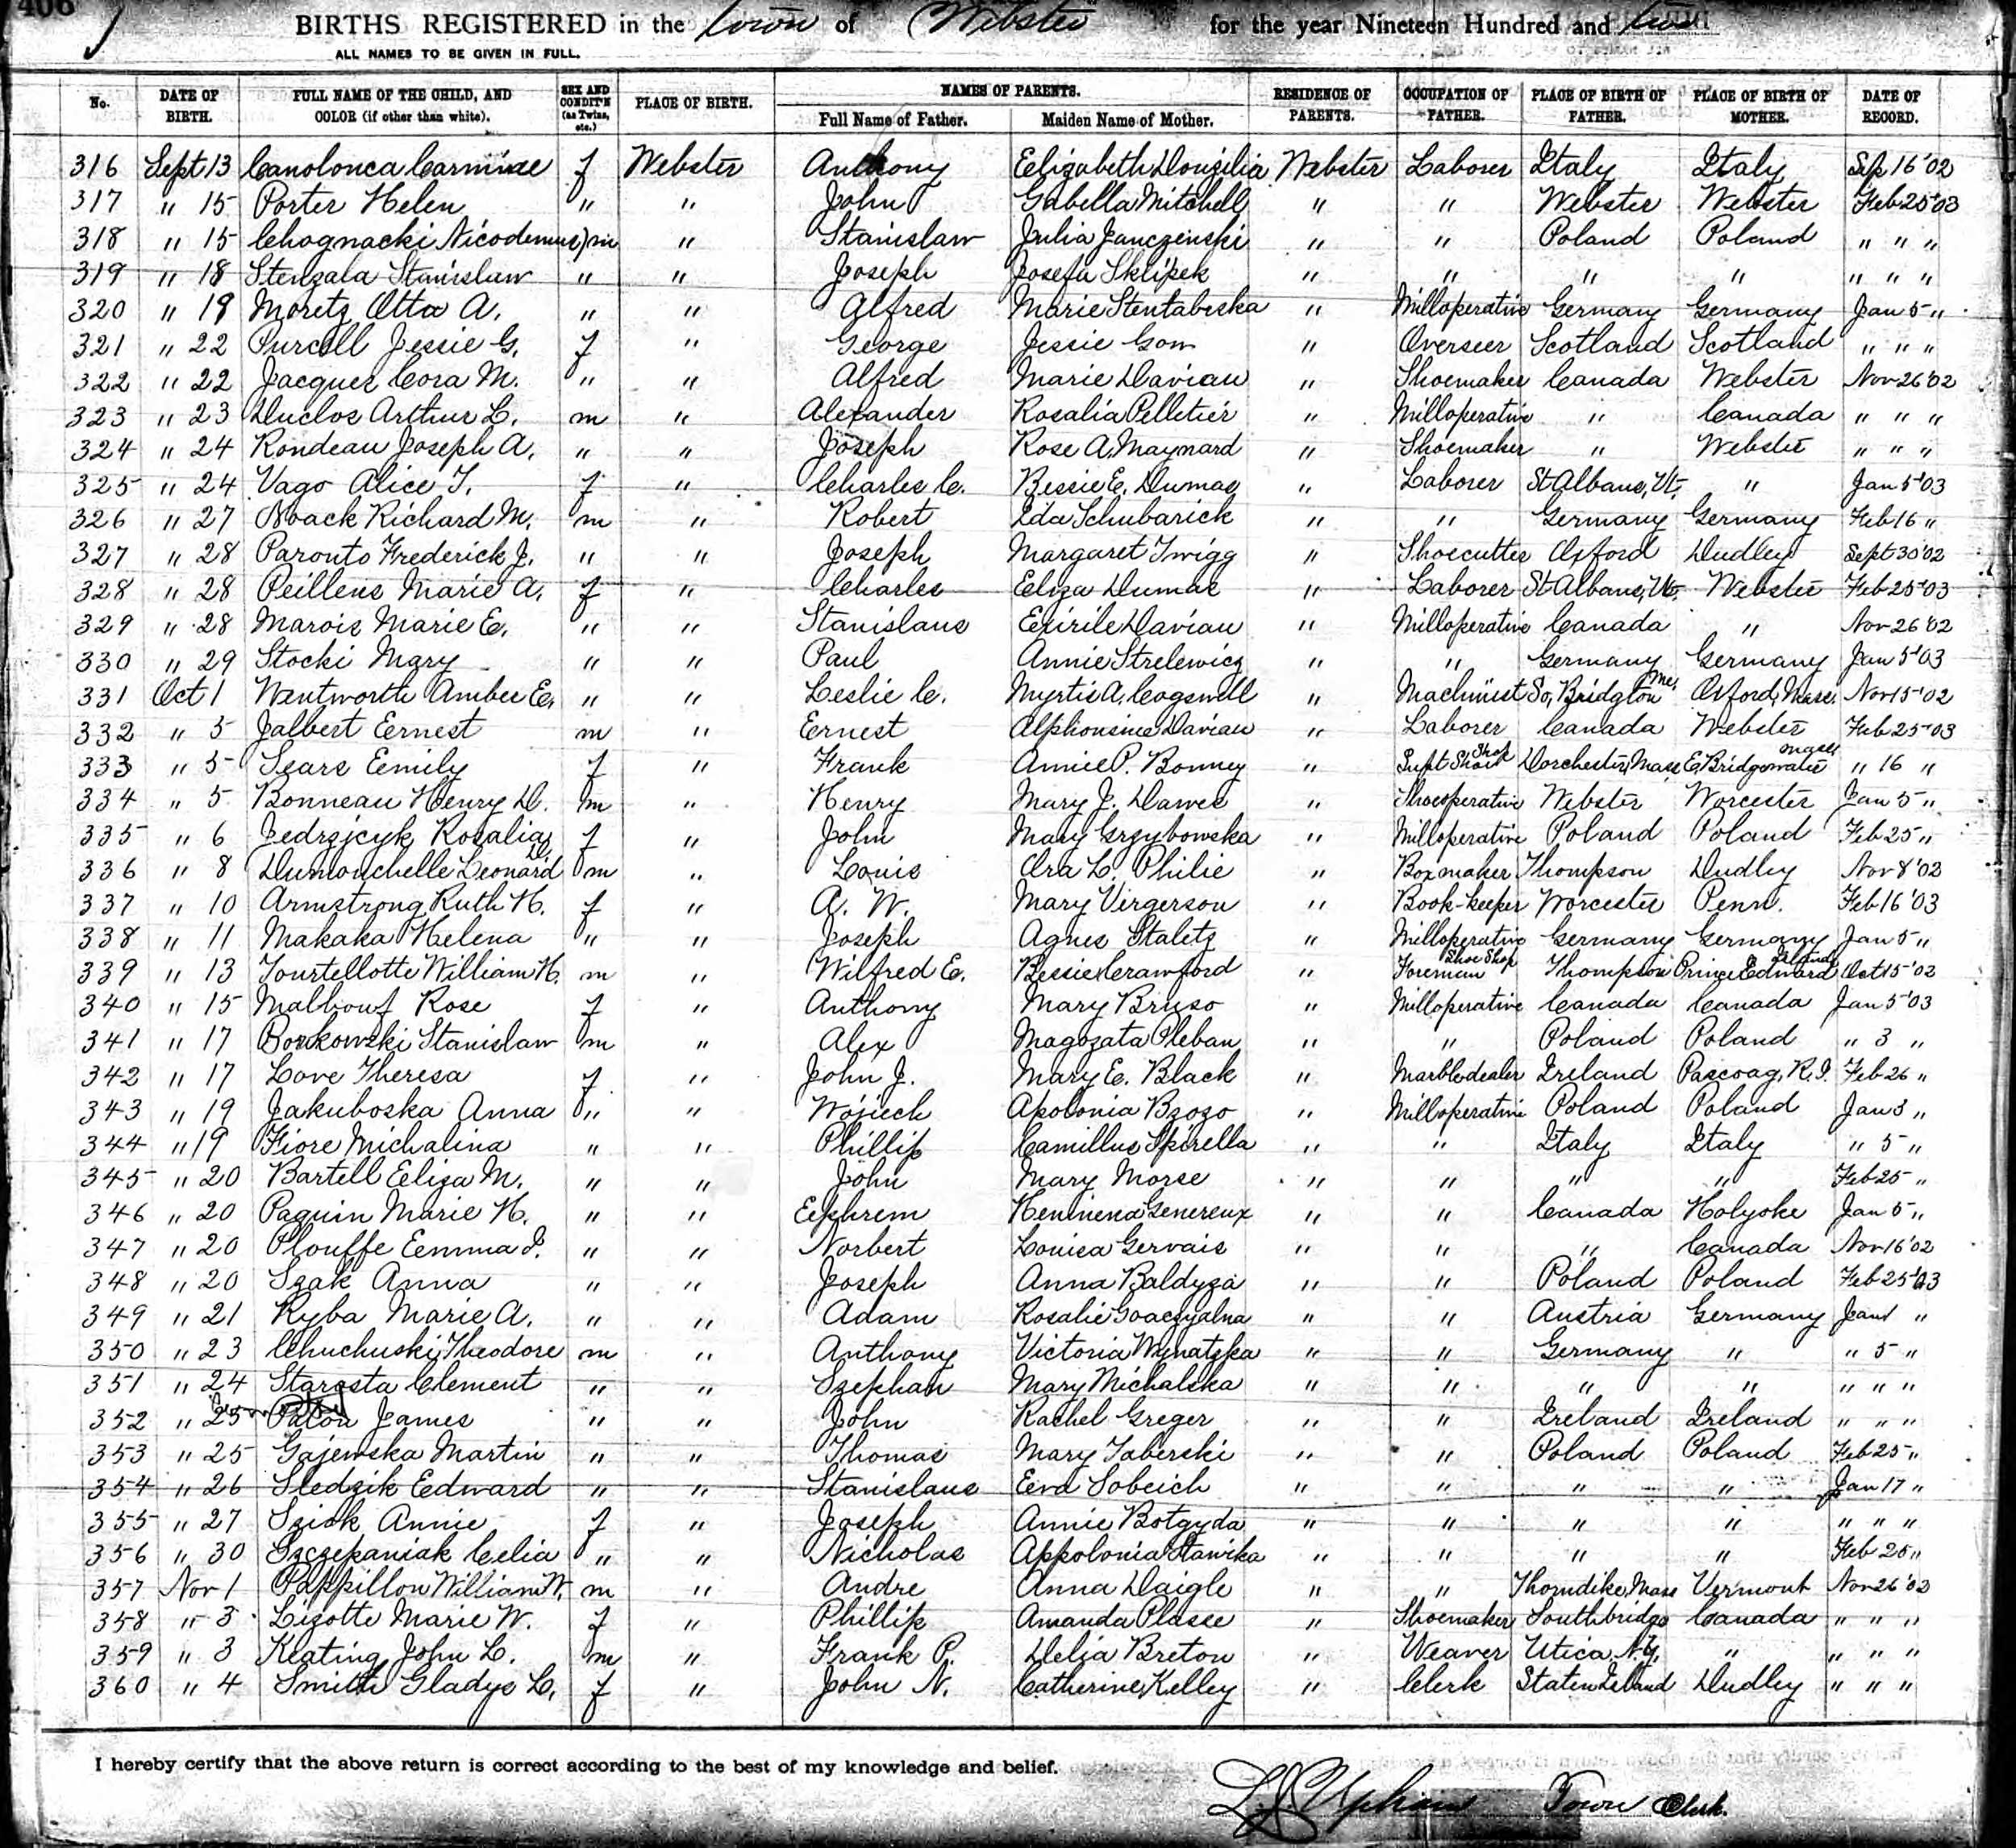 406
BIRTHS REGISTERED in the town of Webster for the year Nineteen Hundred and two
ALL NAMES TO BE GIVEN IN FULL.
No. DATE OF BIRTH. FULL NAME OF THE CHILD, AND COLOR (if other than white). SEX AND CONDIT'N (as Twins, etc.) PLACE OF BIRTH. NAMES OF PARENTS. Full Name of Father. Maiden Name of Mother. RESIDENCE OF PARENTS. OCCUPATION OF FATHER. PLACE OF BIRTH OF FATHER. PLACE OF BIRTH OF MOTHER. DATE OF RECORD.
316 Sept 13 Canolonca Carmine f Webster Anthony Elizabeth Webster Laborer Italy Italy Sep 16 '02
317 " 15 Porter Helen " " John Isabella Mitchell " " Webster Webster Feb 25 '03
318 " 15 Chognacki Nicodemus m " Stanislaw Julia Janczenski " " Poland Poland " " "
319 " 18 Stenzala Stanislaw " " Joseph Josefa Sklipek " " " " " " "
320 " 19 Moretz Otto A. " " Alfred Marie Stentabeska " Milloperative Germany Germany Jan 5 "
321 " 22 Purcell Jessie G. f " George Jessie Gow " Overseer Scotland Scotland " " "
322 " 22 Jacques Cora M. " " Alfred Marie Daviau " Shoemaker Canada Webster Nov 26 '02
323 " 23 Duclos Arthur L. m " Alexander Rosalia Pelletier " Milloperative " Canada " " "
324 " 24 Rondeau Joseph A. " " Joseph Rose A. Maynard " Shoemaker " Webster " " "
325 " 24 Vago Alice T. f " Charles C. Bessie E. Dumas " Laborer St Albans, Vt. " Jan 5 '03
326 " 27 Noack Richard M. m " Robert Ida Schubarick " " Germany Germany Feb 16 "
327 " 28 Paronto Frederick J. " " Joseph Margaret Twigg " Shoecutter Oxford Dudley Sept 30 '02
328 " 28 Peillens Marie A. f " Charles Eliza Dumas " Laborer St Albans, Vt. Webster Feb 25 '03
329 " 28 Marois Marie E. " " Stanislaus Exirile Daviau " Milloperative Canada " Nov 26 '02
330 " 29 Stocki Mary " " Paul Annie Strelewicz " " Germany Germany Jan 5 '03
331 Oct 1 Wentworth Amber E. " " Leslie C. Myrtis A. Cogswell " Machinist So. Bridgton Me. Oxford, Mass. Nov 15 '02
332 " 5 Jalbert Ernest m " Ernest Alphonsine Daviau " Laborer Canada Webster Feb 25 '03
333 " 5 Sears Emily f " Frank Annie P. Bonney " Supt Shoe Shop Dorchester, Mass E. Bridgewater Mass " 16 "
334 " 5 Bonneau Henry D. m " Henry Mary J. Dawes " Shoeoperative Webster Worcester Jan 5 "
335 " 6 Jedrzjcyk Rosalia f " John Mary Grzybowska " Milloperative Poland Poland Feb 25 "
336 " 8 Dumouchelle Leonard D. m " Louis Ora L. Philie " Boxmaker Thompson Dudley Nov 8 '02
337 " 10 Armstrong Ruth H. f " A. W. Mary Virgerson " Book-keeper Worcester Penn. Feb 16 '03
338 " 11 Makaka Helena " " Joseph Agnes Staletz " Milloperative Germany Germany Jan 5 "
339 " 13 Tourtellotte William H. m " Wilfred E. Bessie Crawford " Foreman Shoe Shop Thompson Prince Edward Island Oct 15 '02
340 " 15 Malbouf Rose f " Anthony Mary Bruso " Milloperative Canada Canada Jan 5 '03
341 " 17 Borkowski Stanislaw m " Alex Magozata Pleban " " Poland Poland " 3 "
342 " 17 Love Theresa f " John J. Mary E. Black " Marbledealer Ireland Pascoag, R.I. Feb 26 "
343 " 19 Jakuboska Anna " " Wojiech Apolonia Bzozo " Milloperative Poland Poland Jan 3 "
344 " 19 Fiore Michalina " " Phillip Camillus Spirella " " Italy Italy " 5 "
345 " 20 Bartell Eliza M. " " John Mary Morse " " " " Feb 25 "
346 " 20 Paquin Marie H. " " Ephrem Genereux " " Canada Holyoke Jan 5 "
347 " 20 Plouffe Emma I. " " Norbert Louisa Gervais " " " Canada Nov 16 '02
348 " 20 Szak Anna " " Joseph Anna Baldyza " " Poland Poland Feb 25 '03
349 " 21 Ryba Marie A. " " Adam Rosalie " " Austria Germany Jan 1 "
350 " 23 Chuchuski Theodore m " Anthony Victoria Wynatzka " " Germany " " 5 "
351 " 24 Starosta Clement " " Szephan Mary Michalska " " " " " " "
352 " 25 James " " John Rachel Greger " " Ireland Ireland " " "
353 " 25 Gajewska Martin " " Thomas Mary Taberski " " Poland Poland Feb 25 "
354 " 26 Sledzik Edward " " Stanislaus Eva Sobeich " " " " Jan 17 "
355 " 27 Sziok Annie f " Joseph Annie Botgyda " " " " " " "
356 " 30 Szczepaniak Celia " " Nicholas Appolonia Stawika " " " " Feb 25 "
357 Nov 1 Pappillon William W. m " Andre Anna Daigle " " Thorndike, Mass Vermont Nov 26 '02
358 " 3 Lizotte Marie W. f " Phillip Amanda Plasse " Shoemaker Southbridge Canada " " "
359 " 3 Keating John L. m " Frank P. Delia Breton " Weaver Utica, N.Y. " " " "
360 " 4 Smith Gladys L. f " John N. Catherine Kelley " Clerk Staten Island Dudley " " "
I hereby certify that the above return is correct according to the best of my knowledge and belief.
Upham Town Clerk.